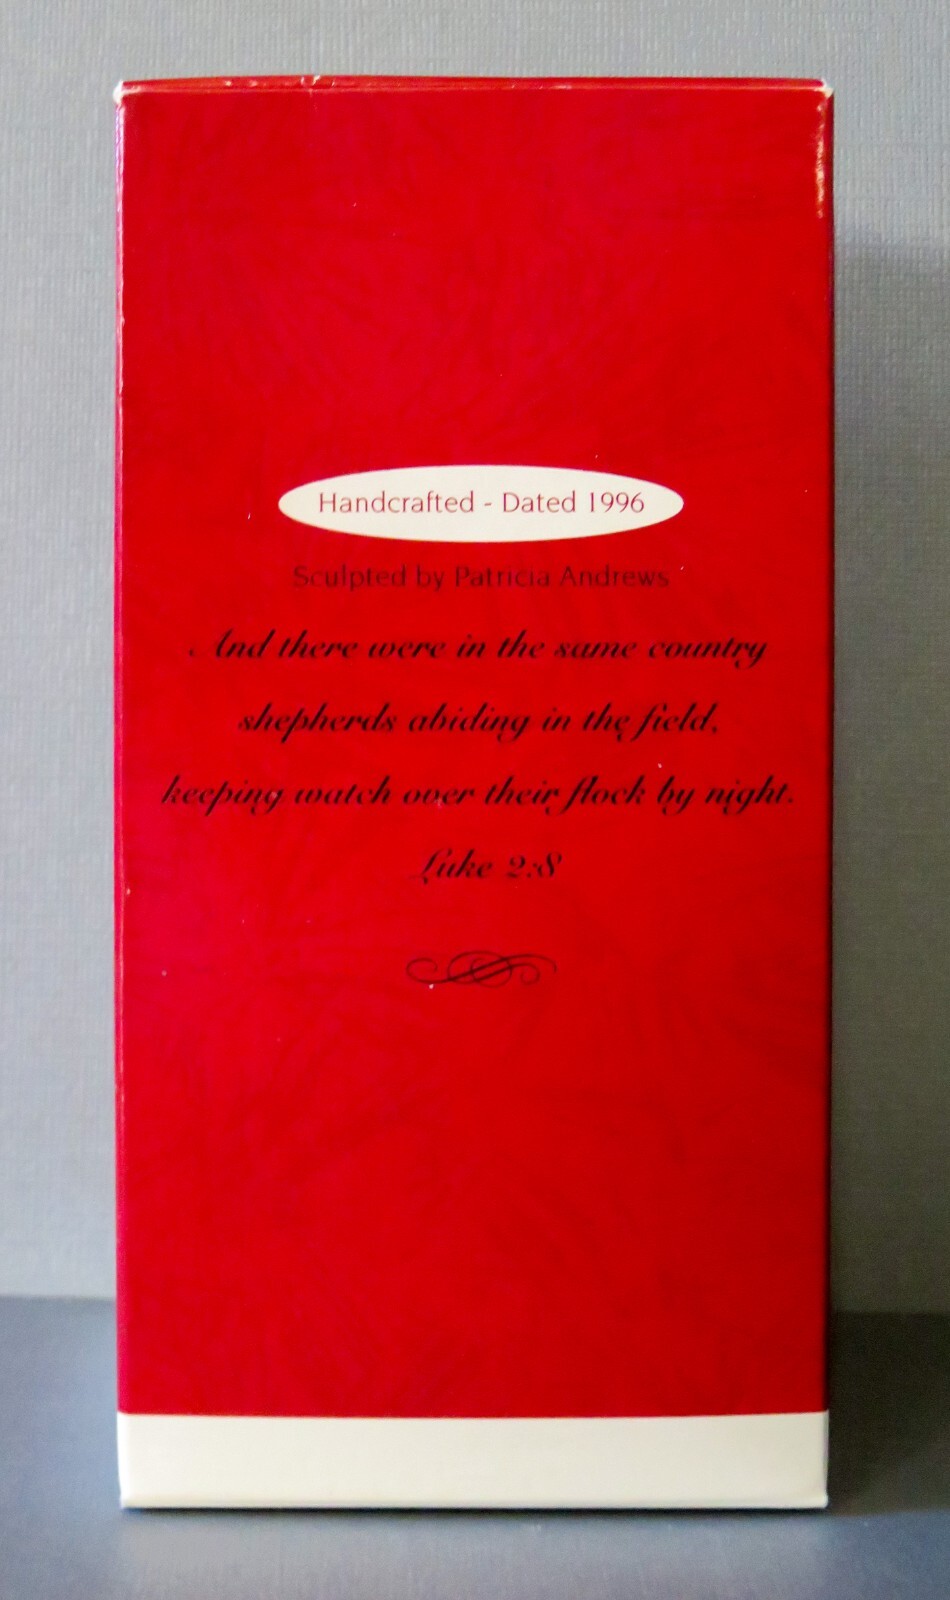 Handcrafted - Dated 1996
Sculpted by Patricia Andrews
And there were in the same country
shepherds abiding in the field,
keeping watch over their flock by night.
Luke 2:8